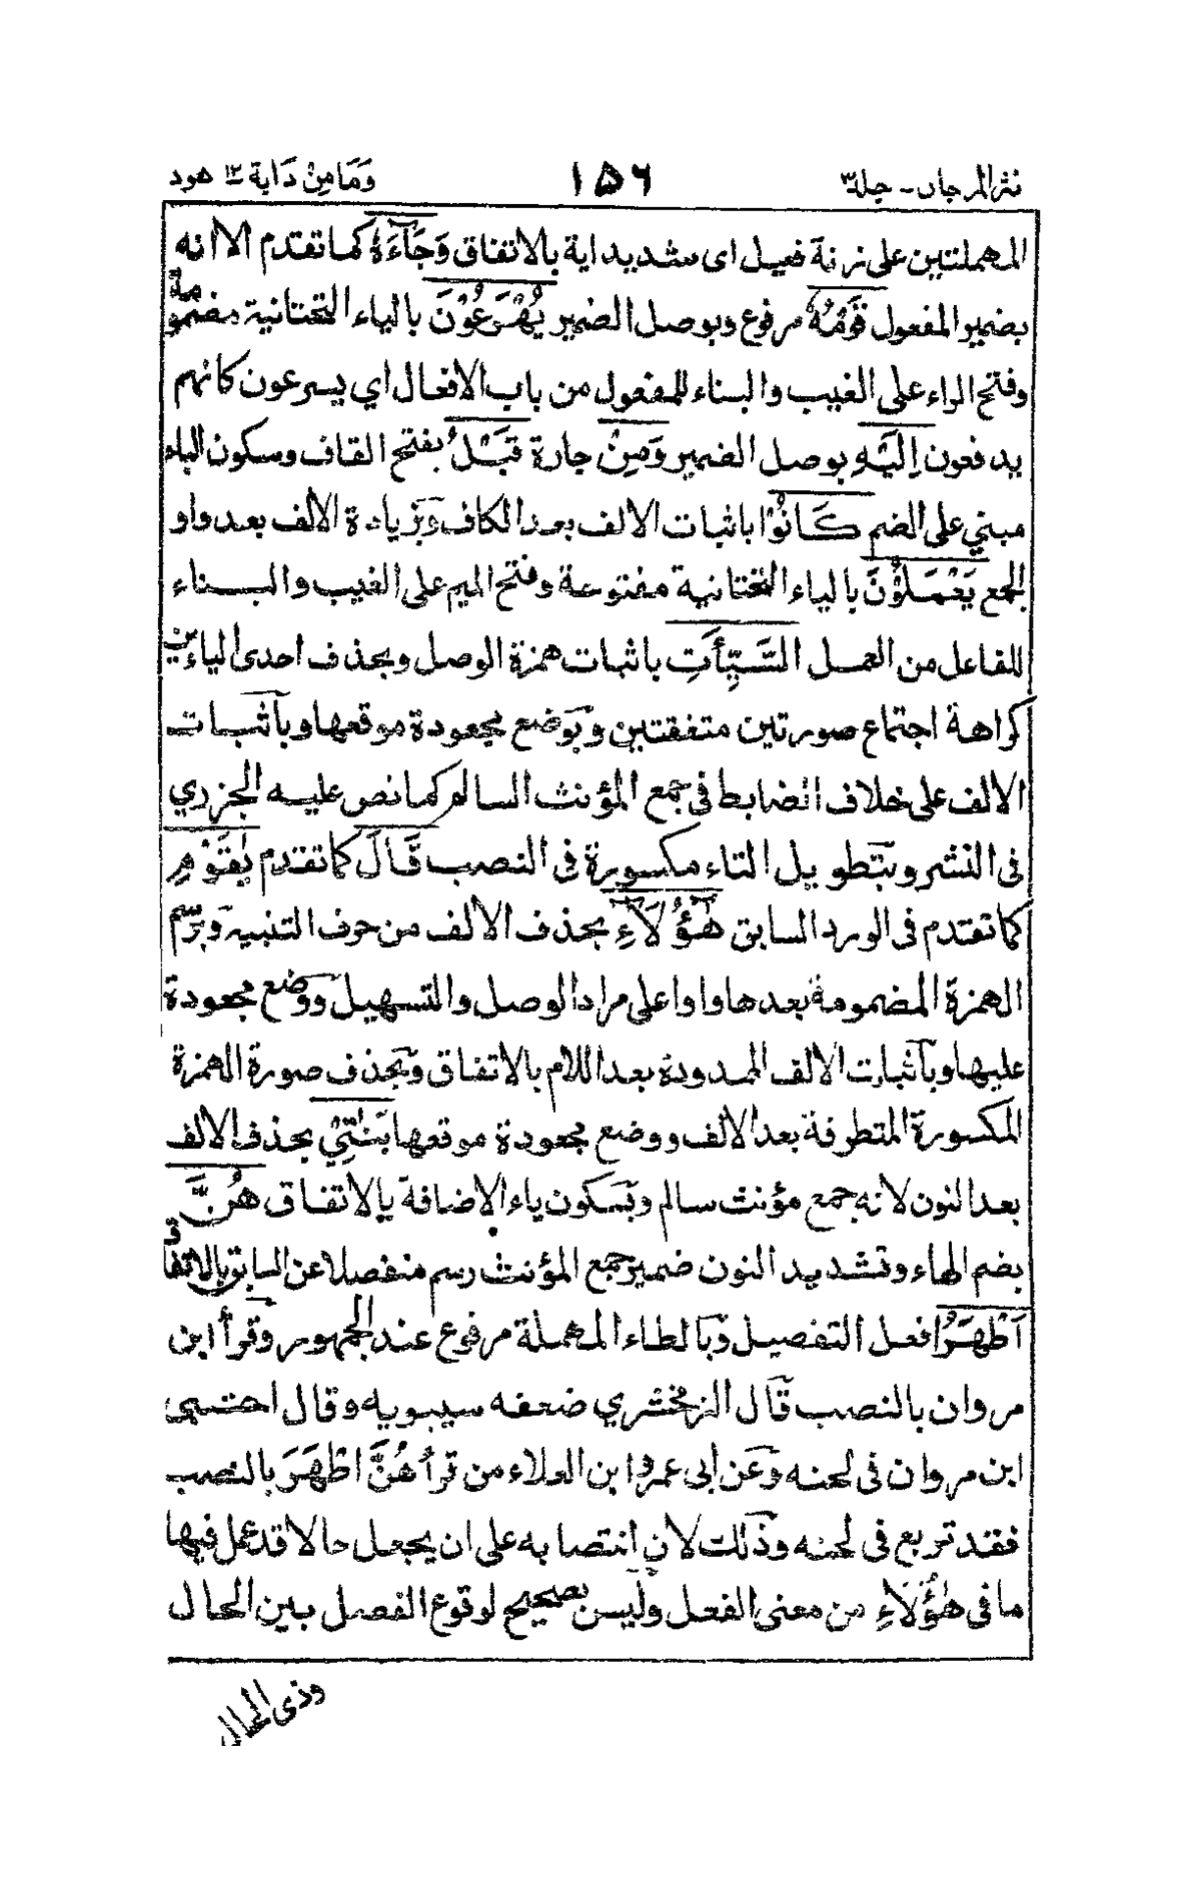 نثر المرجان - جلد ٣ ١٥٦ وَمَا مِنْ دَابة ١٢ هود
المهملتين على زنة فعيل اى شديد اية بالاتفاق وَجَآءَهٗ كما تقدم الا انه
بضمير المفعول قَوْمُهٗ مرفوع وبوصل الضمير يُهْرَعُوْنَ بالياء التحتانية مضمومة
وفتح الراء على الغيب والبناء للمفعول من باب الافعال اي يسرعون كانهم
يدفعون اِلَيْهِ بوصل الضمير وَمِنْ جارة قَبْلُ بفتح القاف وسكون الباء
مبني على الضم كَانُوْا باثبات الالف بعد الكاف وَبزيادة الالف بعد واو
الجمع يَعْمَلُوْنَ بالياء التحتانية مفتوحة وفتح الميم على الغيب والبناء
للفاعل من العمل السَّيِّأٰتِ باثبات همزة الوصل وبحذف احدى الياءين
كراهة اجتماع صورتين متفقتين وبوَضع مجعودة موقعها وبآثبات
الالف على خلاف الضابط فى جمع المؤنث السالم كما نص عليه الجزري
فى النشر وبتَطويل التاء مكسورة فى النصب قَالَ كما تقدم يٰقَوْمِ
كما تقدم فى الورد السابق هٰٓؤُلَآءِ بحذف الالف من حرف التنبيه وبرَسم
الهمزة المضمومة بعدها واوا على مراد الوصل والتسهيل ووَضع مجعودة
عليها وبآثبات الالف الممدودة بعد اللام بالاتفاق وَبحذف صورة الهمزة
المكسورة المتطرفة بعد الالف ووضع مجعودة موقعها بَنٰتِيْ بحذف الالف
بعد النون لانه جمع مؤنث سالم وبَسكون ياء الاضافة بالاتفاق هُنَّ
بضم الهاء وتشديد النون ضمير جمع المؤنث رسم منفصلا عن السابق بالاتفاق
اَطْهَرُ افعل التفضيل وَبالطاء المهملة مرفوع عند الجمهور وقَرأ ابن
مروان بالنصب قَال الزمخشري ضعفه سيبويه وقال احتبى
ابن مروان فى لحنه وَعن ابى عمرو ابن العلاء من قرأ هُنَّ اطْهَرَ بالنصب
فقد تربع فى لحنه وَذلك لان انتصابه على ان يجعل حالا قد عمل فيها
ما فى هٰؤُلَاءِ من معنى الفعل وَليس بصحيح لوقوع الفصل بين الحال
وذى الحال